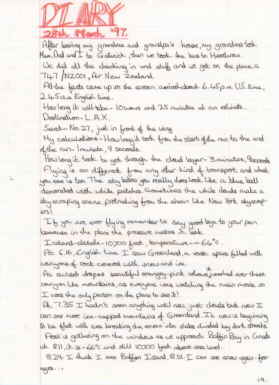 DIARY
28th March '97.
After leaving my grandma and grandpa's house, my grandma took
Mum, Dad and I to Gatwick, then we took the bus to Heathrow.
We did all the checking in and stuff and we got on the plane a
747, NZ001, Air New Zealand.
All the facts came up on the screen arrived about 6.45 p.m U.S. time,
2.45 a.m English time.
How long it will take - 10 hours and 25 minutes at an estimate.
Destination - L.A.X.
Seat - No. 27, just in front of the wing
My calculations - How long it took from the start of the run to the end
of the run 1 minute, 8 seconds.
How long it took to get through the cloud layer - 3 minutes, 9 seconds
Flying is so different from any other kind of transport and what
you see is too. The sky below you really does look like a blue ball
decorated with white patches. Sometimes the white clouds make a
sky scraping scene, protruding from the sheer like New York skyscrap-
ers!
If you are ever flying remember to say good bye to your pen
because in the plane the pressure makes it leak.
Iceland - altitude - 10,300 feet, temperature - -66°c.
At 6.16, English time I saw Greenland, a vast space filled with
canyons of rock covered with snow and ice.
As sunset dropped beautiful orangey-pink
canyon like mountains, as everyone was watching the main movie, so
I was the only person on the plane to see it!
At 7.35 I hadn't seen anything well was just clouds but now I
can see more ice-capped mountains of Greenland. It is now beginning
to be flat with ice breaking the sheer into plates divided by dark streaks.
Frost is gathering on the windows as we approach Baffin Bay in Canada
at 8.11, it is -66°c and still 10,300 feet above sea level.
8.24 I think I see Baffin Island, 8.31 I can see snow again - for
ages...